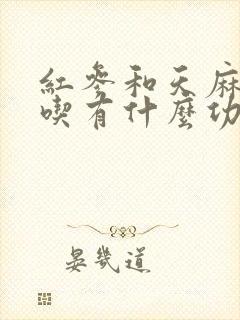 紅參和天麻
喫有什麼功
晏幾道